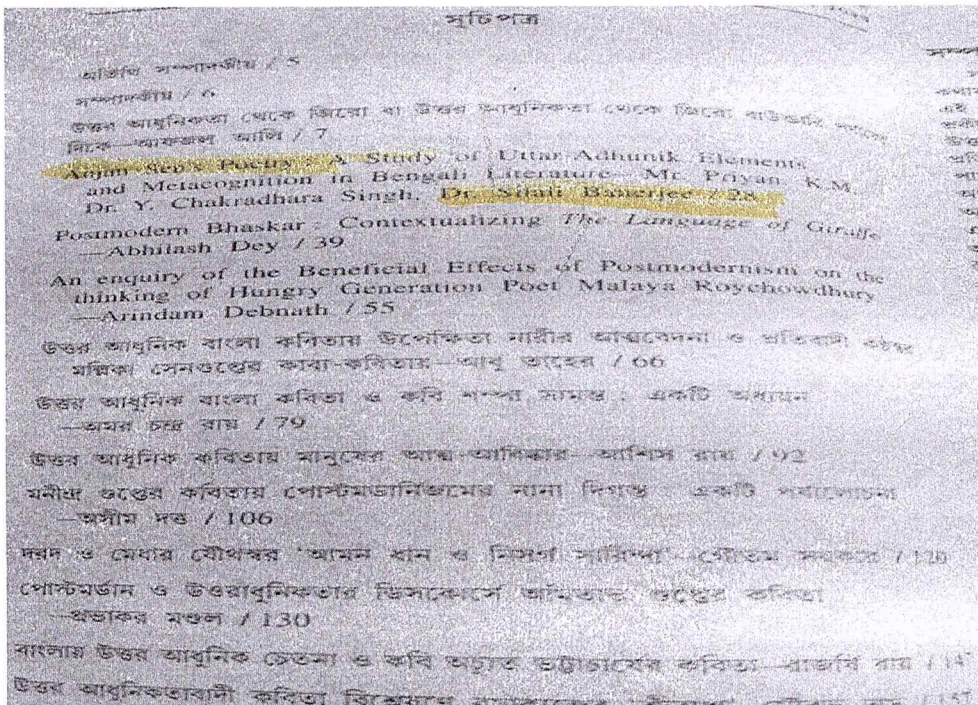 সূচিপত্র
অতিথি সম্পাদকীয় / 5
সম্পাদকীয় / 6
উত্তর আধুনিকতা থেকে জিরো বা উত্তর আধুনিকতা থেকে জিরো বাউন্ডারি
দিকে—আফজল আলি / 7
Anjan Sen's Poetry : A Study of Uttar-Adhunik Elements
and Metacognition in Bengali Literature—Mr. Priyan K.M.
Dr. Y. Chakradhara Singh, Dr. Sifali Banerjee / 28
Postmodern Bhaskar : Contextualizing The Language of Giraffe
—Abhilash Dey / 39
An enquiry of the Beneficial Effects of Postmodernism on the
thinking of Hungry Generation Poet Malaya Roychowdhury
—Arindam Debnath / 55
উত্তর আধুনিক বাংলা কবিতায় উপেক্ষিতা নারীর আত্মবেদনা ও প্রতিবাদী কণ্ঠস্বর
মল্লিকা সেনগুপ্তের কাব্য-কবিতায়—আবু তাহের / 66
উত্তর আধুনিক বাংলা কবিতা ও কবি শম্পা সামন্ত : একটি অধ্যয়ন
—অমর চন্দ্র রায় / 79
উত্তর আধুনিক কবিতায় মানুষের আত্ম-আবিষ্কার—আশিস রায় / 92
মনীন্দ্র গুপ্তের কবিতায় পোস্টমডার্নিজমের নানা দিগন্ত একটি পর্যালোচনা
—অসীম দত্ত / 106
দরদ ও মেধার যৌথস্বর 'আমন ধান ও নিসর্গ সারিন্দা'—গৌতম সরকার / 120
পোস্টমর্ডান ও উওরাধুনিকতার ডিসকোর্সে অমিতাভ গুপ্তের কবিতা
—প্রভাকর মণ্ডল / 130
বাংলায় উত্তর আধুনিক চেতনা ও কবি অচ্যুত ভট্টাচার্যের কবিতা—রাজর্ষি রায় / 147
উত্তর আধুনিকতাবাদী কবিতা / 157